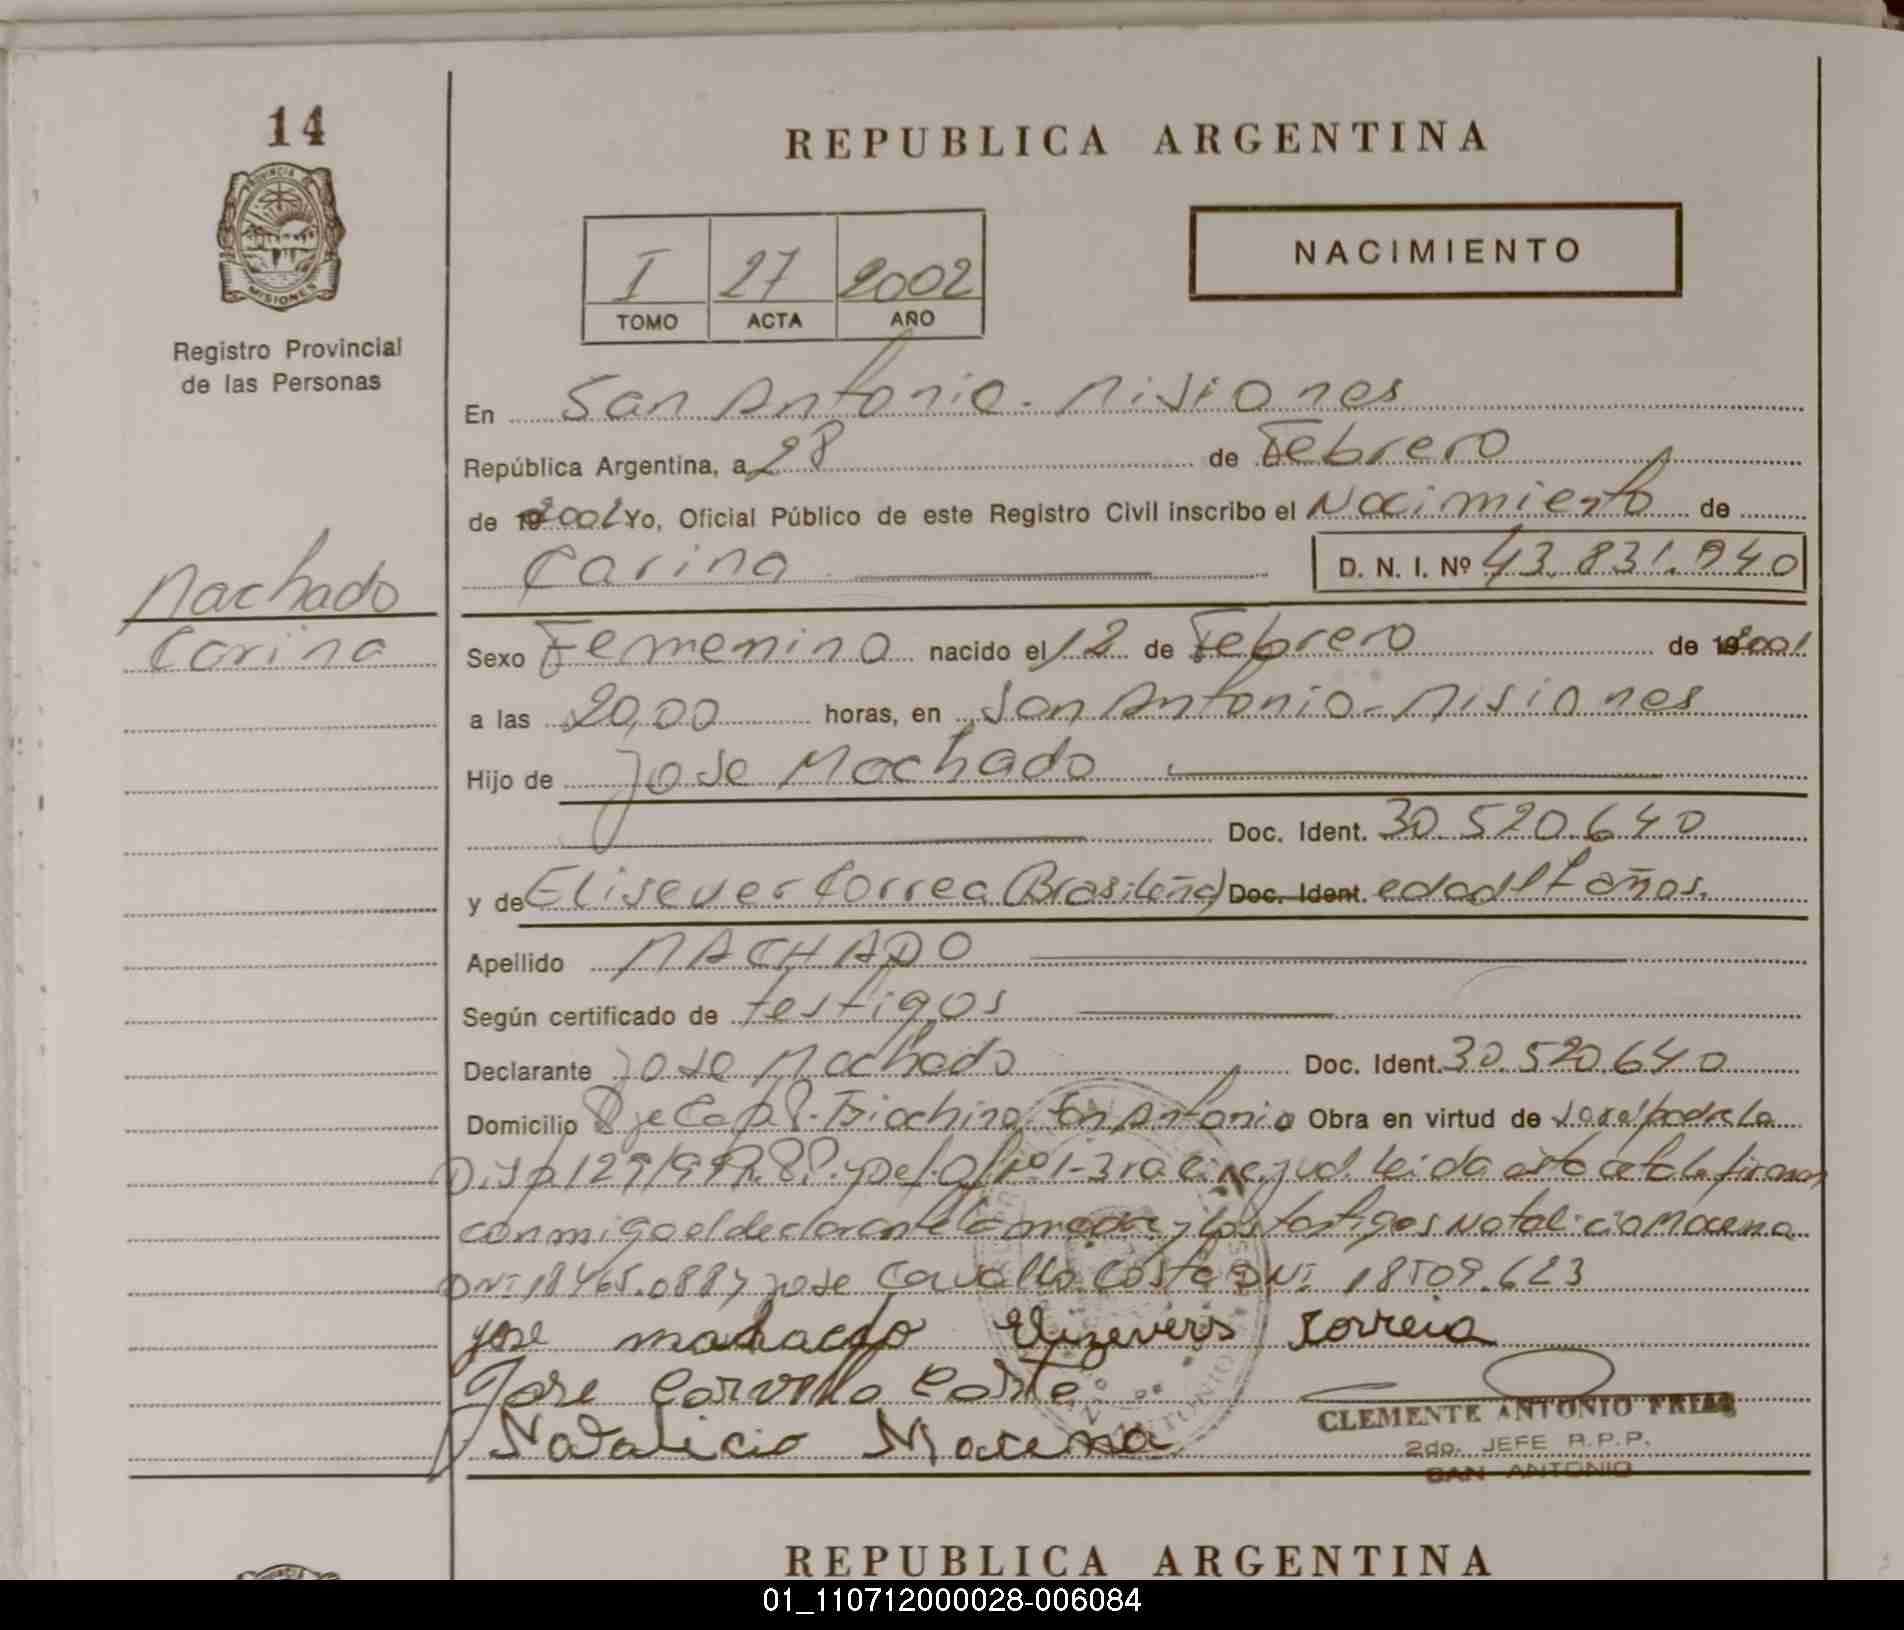 14
REPUBLICA ARGENTINA
PROVINCIA
MISIONES
NACIMIENTO
I 27 2002
TOMO ACTA AÑO
Registro Provincial
de las Personas
En San Antonio - Misiones
República Argentina, a 28 de Febrero
de 2002 Yo, Oficial Público de este Registro Civil inscribo el Nacimiento de
Carina D. N. I. Nº 43.831.940
Machado
Carina
Sexo Femenino nacido el 12 de Febrero de 2001
a las 20,00 horas, en San Antonio - Misiones
Hijo de Jose Machado
Doc. Ident. 30.520.640
y de Elisever Correa (Brasileña) Doc. Ident. edad años.
Apellido MACHADO
Según certificado de testigos
Declarante Jose Machado Doc. Ident. 30.520.640
Domicilio San Antonio Obra en virtud de
Leida esta acta la firman
conmigo el declarante la madre y los testigos Natalicio Macena
DNI 18465.088 y Jose Cavallo Costa DNI 18509.623
Jose machado Elizevers Correia
Jose Carvello Coste
Natalicio Macena
CLEMENTE ANTONIO FRIAS
2do. JEFE R.P.P.
SAN ANTONIO
REPUBLICA ARGENTINA
01_110712000028-006084